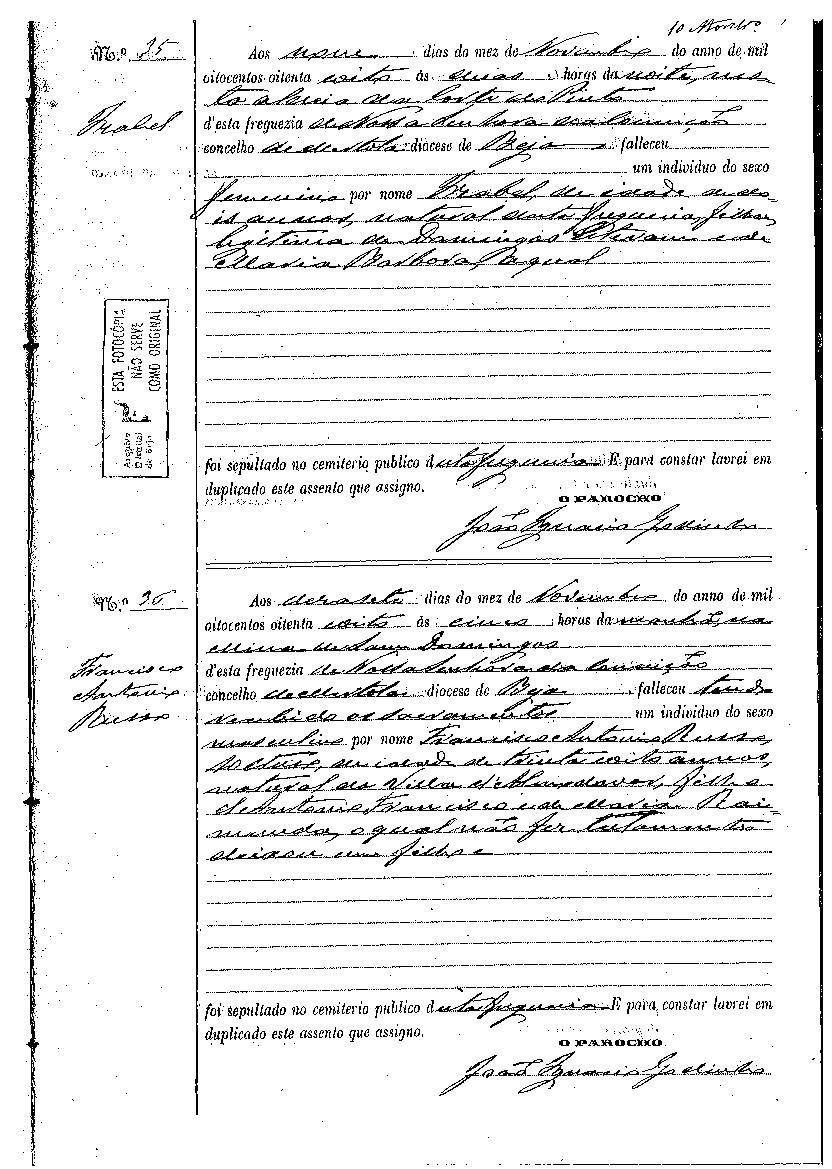 N.º 35
Isabel
Aos nove dias do mez de Novembro do anno de mil
oitocentos oitenta oito ás horas da noite, nes-
ta aldeia da Corte do Pinto
d'esta freguezia de Nossa Senhora da Conceição
concelho de Mertola diocese de Beja falleceu
um individuo do sexo
femenino por nome Isabel, de idade de do-
is annos, natural desta freguezia, filha
legitima de Domingos e de
Maria Barbosa
ESTA FOTOCÓPIA
NÃO SERVE
COMO ORIGINAL
Arquivo
Distrital
de Beja
foi sepultado no cemiterio publico desta freguezia E para constar lavrei em
duplicado este assento que assigno.
O PAROCHO
João Ignacio Godinho
N.º 36
Francisco
Antonio
Russo
Aos dezasete dias do mez de Novembro do anno de mil
oitocentos oitenta oito ás cinco horas da manhã, na
Mina de Sam Domingos
d'esta freguezia de Nossa Senhora da Conceição
concelho de Mertola diocese de Beja falleceu tendo
recebido os sacramentos um individuo do sexo
masculino por nome Francisco Antonio Russo,
de idade de trinta oito annos,
natural da Villa d'Almodovar, filho
de Antonio Francisco e de Maria Rai-
munda, o qual não fez testamento
deixou um filho
foi sepultado no cemiterio publico desta freguezia E para constar lavrei em
duplicado este assento que assigno.
O PAROCHO
João Ignacio Godinho